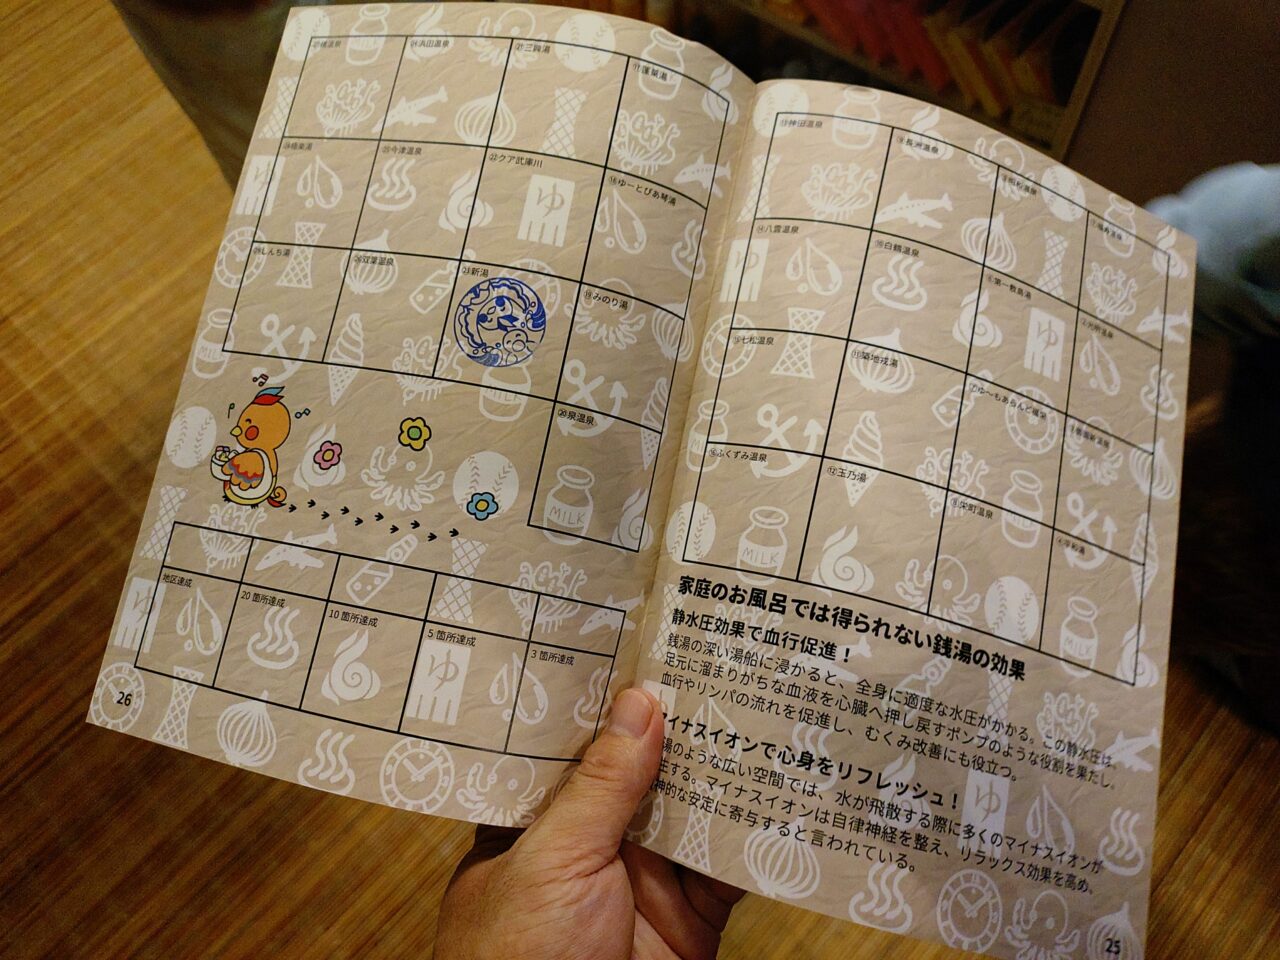 ②光明温泉
④平和湯
⑤昭和温泉
⑥第一敷島湯
⑦ゆ～もあらんど福栄
⑧栄町温泉
⑨長洲温泉
⑩白鶴温泉
⑪築地戎湯
⑫玉乃湯
⑬神田温泉
⑭八雲温泉
⑮七松温泉
⑯ふくずみ温泉
家庭のお風呂では得られない銭湯の効果
静水圧効果で血行促進！
銭湯の深い湯船に浸かると、全身に適度な水圧がかかる。この静水圧は、
足元に溜まりがちな血液を心臓へ押し戻すポンプのような役割を果たし、
血行やリンパの流れを促進し、むくみ改善にも役立つ。
マイナスイオンで心身をリフレッシュ！
湯のような広い空間では、水が飛散する際に多くのマイナスイオンが
生する。マイナスイオンは自律神経を整え、リラックス効果を高め、
神的な安定に寄与すると言われている。
25
⑰蓬莱湯
⑱ゆーとぴあ琴浦
⑲みのり湯
⑳泉温泉
㉑三興湯
㉒クア武庫川
㉓新湯
㉔浜田温泉
㉕今津温泉
㉖双葉温泉
㉘極楽湯
㉙しんち湯
3 箇所達成
5 箇所達成
10 箇所達成
20 箇所達成
地区達成
26
ゆ
MILK